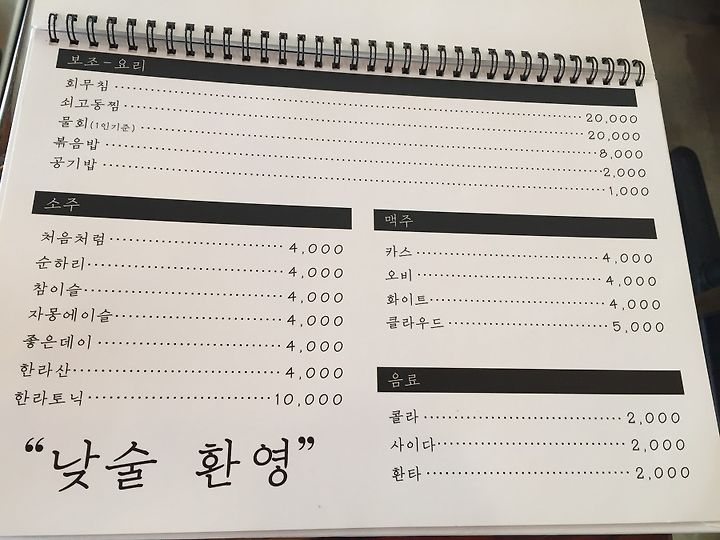 보조-요리
회무침 20,000
쇠고동찜 20,000
물회(1인기준) 8,000
볶음밥 2,000
공기밥 1,000
소주
처음처럼 4,000
순하리 4,000
참이슬 4,000
자몽에이슬 4,000
좋은데이 4,000
한라산 4,000
한라토닉 10,000
맥주
카스 4,000
오비 4,000
화이트 4,000
클라우드 5,000
음료
콜라 2,000
사이다 2,000
환타 2,000
“낮술 환영”